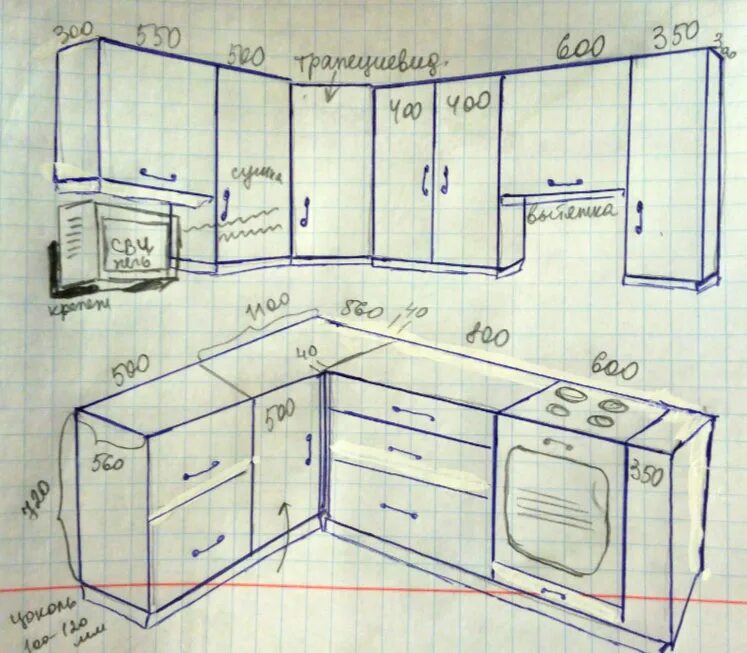 300
550
500
трапециевид.
600
350
300
400
400
сушка
СВЧ
печь
вытяжка
крепеж
1100
860
40
500
40
800
600
560
500
720
350
цоколь
100-120
мм